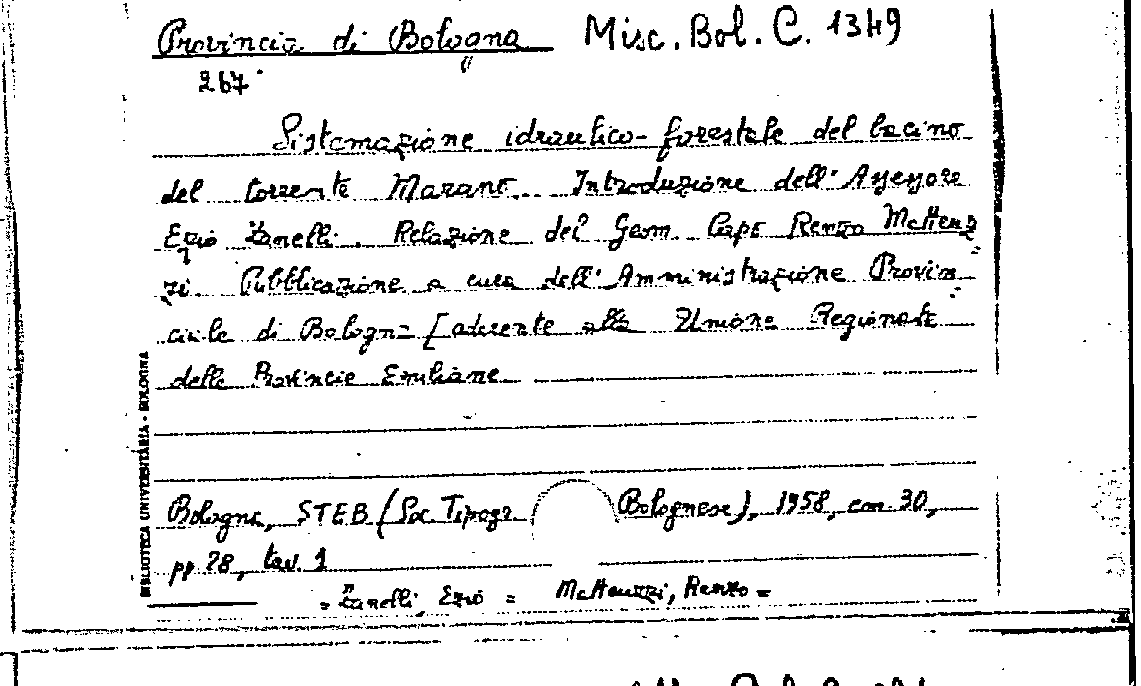 Provincia di Bologna Misc. Bol. C. 1349
267
Sistemazione idraulico-forestale del bacino
del torrente Marano. Introduzione dell'Assessore
Ezio Zanelli. Relazione del Geom. Capo Renzo Matteuz
zi. Pubblicazione a cura dell'Amministrazione Provin
ciale di Bologna [aderente alla Unione Regionale
delle Provincie Emiliane
Bologna, STEB (Soc. Tipogr Bolognese), 1958, cm. 30,
pp 28, tav. 1
= Zanelli, Ezio = Matteuzzi, Renzo =
BIBLIOTECA UNIVERSITARIA - BOLOGNA